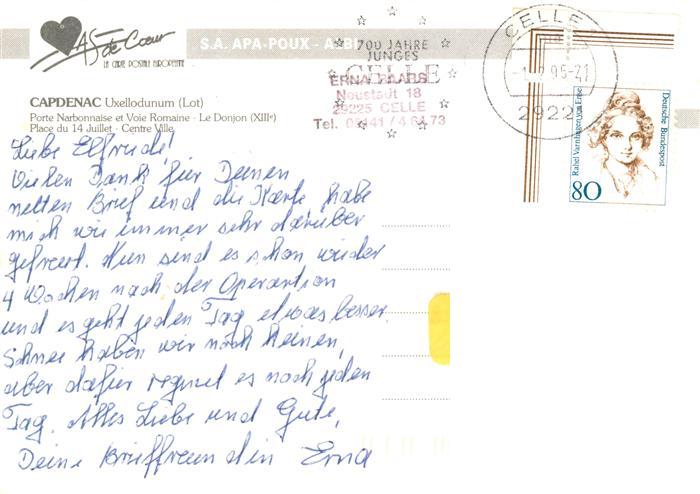 As de Cœur
LA CARTE POSTALE EUROPEENNE
S.A. APA-POUX - ALBI
CAPDENAC Uxellodunum (Lot)
Porte Narbonnaise et Voie Romaine - Le Donjon (XIIIe)
Place du 14 Juillet - Centre Ville
700 JAHRE
JUNGES
CELLE
ERNA
Neustadt 18
29225 CELLE
Tel. 05141 / 4 64 73
CELLE
95-21
2922
Deutsche Bundespost
Rahel Varnhagen von Ense
80
Liebe Elfriede!
Vielen Dank für Deinen
netten Brief und die Karte habe
mich wie immer sehr darüber
gefreut. Nun sind es schon wieder
4 Wochen nach der Operation
und es geht jeden Tag etwas besser.
Schnee haben wir noch keinen,
aber dafür regnet es noch jeden
Tag. Alles Liebe und Gute,
Deine Brieffreundin Erna